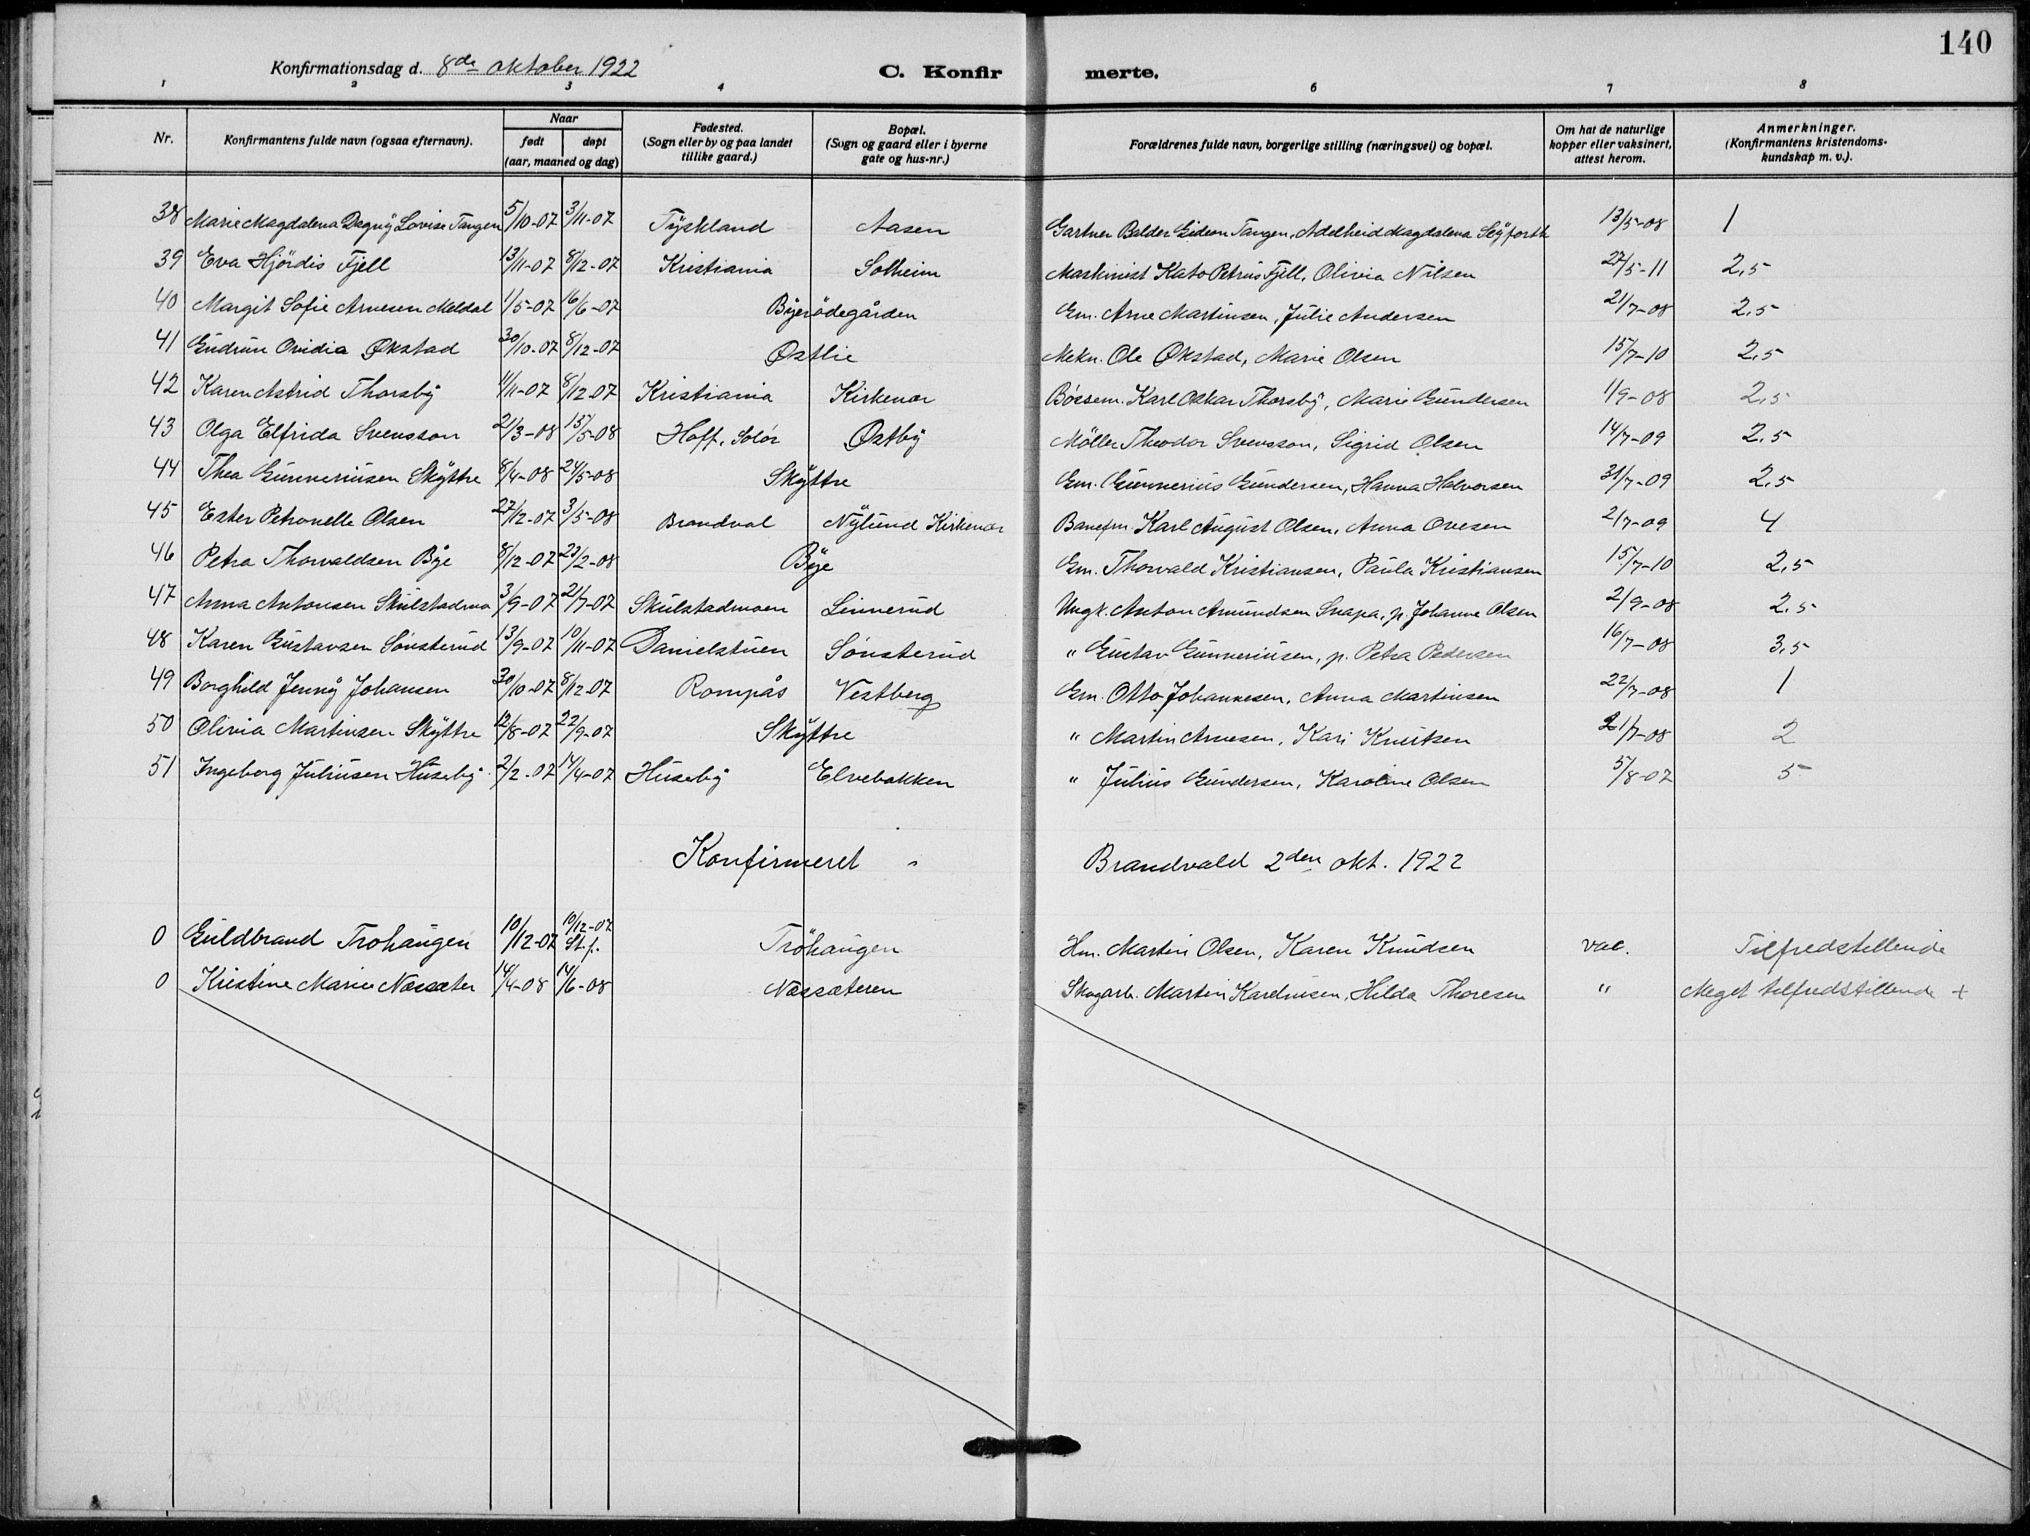 140
Konfirmationsdag d. 8de oktober 1922 C. Konfirmerte.
1 2 3 4 6 7 8
Nr. Konfirmantens fulde navn (ogsaa efternavn). Naar født døpt (aar, maaned og dag) Fødested. (Sogn eller by og paa landet tillike gaard.) Bopæl. (Sogn og gaard eller i byerne gate og hus-nr.) Forældrenes fulde navn, borgerlige stilling (næringsvei) og bopæl. Om hat de naturlige kopper eller vaksinert, attest herom. Anmerkninger. (Konfirmantens kristendomskundskap m. v.).
38 Marie Magdalena Dagny Lovise Tangen 5/10-07 3/11-07 Tyskland Aasen Gartner Balder Gideon Tangen, Adelheid Magdalena Seyforth 13/5-08 1
39 Eva Hjördis Fjell 13/11-07 8/12-07 Kristiania Solheim Maskinist Kato Petrus Fjell, Olivia Nilsen 27/5-11 2,5
40 Margit Sofie Arnesen Meldal 1/5-07 16/6-07 Byerödegården Gm. Arne Martinsen, Julie Andersen 21/7-08 2,5
41 Gudrun Ovidia Økstad 30/10-07 8/12-07 Østlie Mekn. Ole Økstad, Marie Olsen 15/7-10 2,5
42 Karen Astrid Thorsby 11/11-07 8/12-07 Kristiania Kirkenær Böesem. Karl Oskar Thorsby, Marie Gundersen 1/9-08 2,5
43 Olga Elfrida Svensson 21/3-08 15/5-08 Hoff, Solör Østby Møller Theodor Svensson, Sigrid Olsen 14/7-09 2,5
44 Thea Gunneriusen Skyttre 8/4-08 24/5-08 Skyttre Gm. Gunnerius Gundersen, Hanna Halvorsen 31/7-09 2,5
45 Ester Petronelle Olsen 27/12-07 3/5-08 Brandval Nylund Kirkenær Banefm. Karl August Olsen, Anna Ovesen 2/7-09 4
46 Petra Thorvaldsen Bye 8/12-07 23/2-08 Bye Gm. Thorvald Kristiansen, Paula Kristiansen 15/7-10 2,5
47 Anna Antonsen Skulstadmo 3/9-07 21/7-07 Skulstadmoen Linnerud Ungk. Anton Amundsen Snapa, p. Johanne Olsen 2/9-08 2,5
48 Karen Gustavsen Sönsterud 13/9-07 10/11-07 Danielstuen Sönsterud " Gustav Gunneriusen, p. Petra Pedersen 16/7-08 3,5
49 Borghild Jenny Johansen 30/10-07 8/12-07 Rompås Vestberg Gm. Otto Johannesen, Anna Martinsen 22/7-08 1
50 Olivia Martinsen Skyttre 12/8-07 22/9-07 Skyttre " Martin Arnesen, Kari Knutsen 21/7-08 2
51 Ingeborg Juliusen Huseby 2/2-07 14/4-07 Huseby Elvebakken " Julius Gundersen, Karoline Olsen 5/8-07 5
Konfirmeret - Brandvald 2den okt. 1922
0 Guldbrand Trohaugen 10/12-07 10/12-07 St.f. Tröhaugen Hm. Martin Olsen, Karen Knudsen vac. Tilfredstillende
0 Kristine Marie Næssæter 14/4-08 14/6-08 Næssæteren Skogarb. Martin Kareliusen, Hilda Thoresen " Meget tilfredstillende +